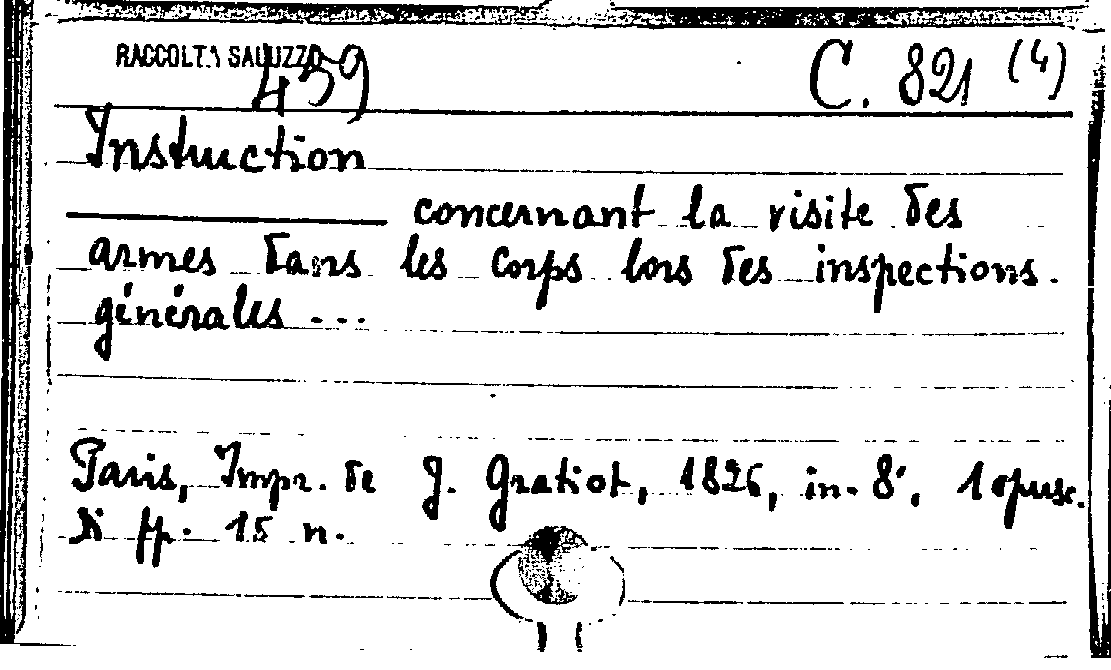 RACCOLTA SALUZZO
459 C. 821 (4)
Instruction
concernant la visite des
armes dans les corps lors des inspections
générales ...
Paris, Impr. de J. Gratiot, 1826, in-8°, 1 opusc.
di pp. 15 n.